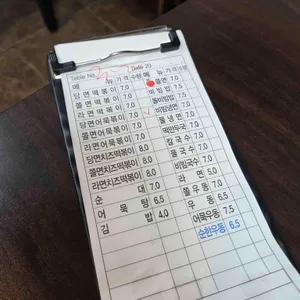 Table No. Date 20
메 뉴 가격 수량 메 뉴 가격 수량
당면떡볶이 7.0 쫄면 7.0
쫄면떡볶이 7.0 비빔밥 7.0
라면떡볶이 7.0 돌비빔밥 7.5
당면어묵볶이 7.0 비빔냉면 7.0
쫄면어묵볶이 7.0 물냉면 7.0
라면어묵볶이 7.0 떡만두국 7.0
당면치즈떡볶이 8.0 칼국수 7.0
쫄면치즈떡볶이 8.0 물국수 7.0
라면치즈떡볶이 8.0 비빔국수 7.0
순대 7.0 라면 5.0
어묵탕 6.5 쫄우동 7.0
김밥 4.0 우동 6.5
어묵우동 7.5
순한우동 6.5